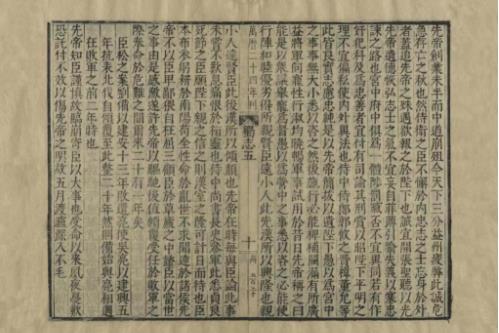 先帝創業未半而中道崩殂今天下三分益州疲弊此誠危
急存亡之秋也然侍衛之臣不懈於內忠志之士忘身於外
者蓋追先帝之殊遇欲報之於陛下也誠宜開張聖聽以光
先帝遺德恢弘志士之氣不宜妄自菲薄引喻失義以塞忠
諫之路也宮中府中俱為一體陟罰臧否不宜異同若有作
奸犯科及為忠善者宜付有司論其刑賞以昭陛下平明之
理不宜偏私使內外異法也侍中侍郎郭攸之費禕董允等
此皆良實志慮忠純是以先帝簡拔以遺陛下愚以為宮中
之事事無大小悉以咨之然後施行必能裨補闕漏有所廣
益將軍向寵性行淑均曉暢軍事試用於昔日先帝稱之曰
能是以眾議舉寵為督愚以為營中之事悉以咨之必能使
行陣和睦優劣得所親賢臣遠小人此先漢所以興隆也親
萬曆二十四年刊
蜀志五
十
小人遠賢臣此後漢所以傾頹也先帝在時每與臣論此事
未嘗不歎息痛恨於桓靈也侍中尚書長史參軍此悉貞良
死節之臣願陛下親之信之則漢室之隆可計日而待也臣
本布衣躬耕於南陽苟全性命於亂世不求聞達於諸侯先
帝不以臣卑鄙猥自枉屈三顧臣於草廬之中諮臣以當世
之事由是感激遂許先帝以驅馳後值傾覆受任於敗軍之
際奉命於危難之間爾來二十有一年矣
臣松之案劉備以建安十三年敗遣亮使吳亮以建興五
年抗表北伐自傾覆至此整二十年然則備始與亮相遇
在敗軍之前一年時也
先帝知臣謹慎故臨崩寄臣以大事也受命以來夙夜憂歎
恐託付不效以傷先帝之明故五月渡瀘深入不毛